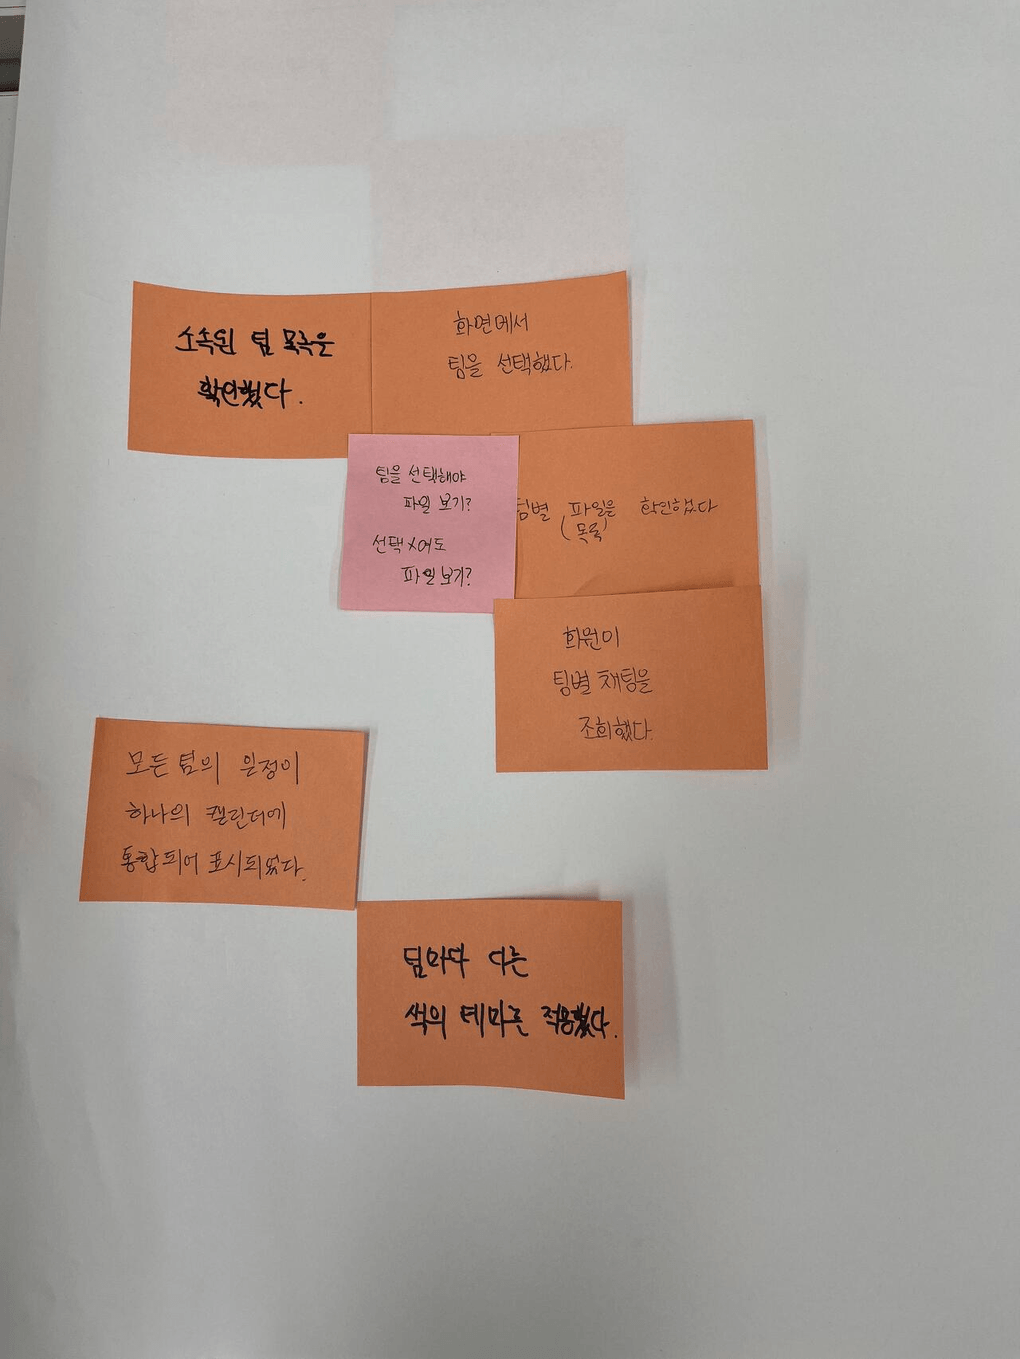 소속된 팀 목록을
확인했다.
화면에서
팀을 선택했다.
팀을 선택해야
파일 보기?
선택X여도
파일 보기?
팀별 파일을 확인했다
(목록)
회원이
팀별 채팅을
조회했다.
모든 팀의 일정이
하나의 캘린더에
통합되어 표시되었다.
팀마다 다른
색의 테마를 적용했다.